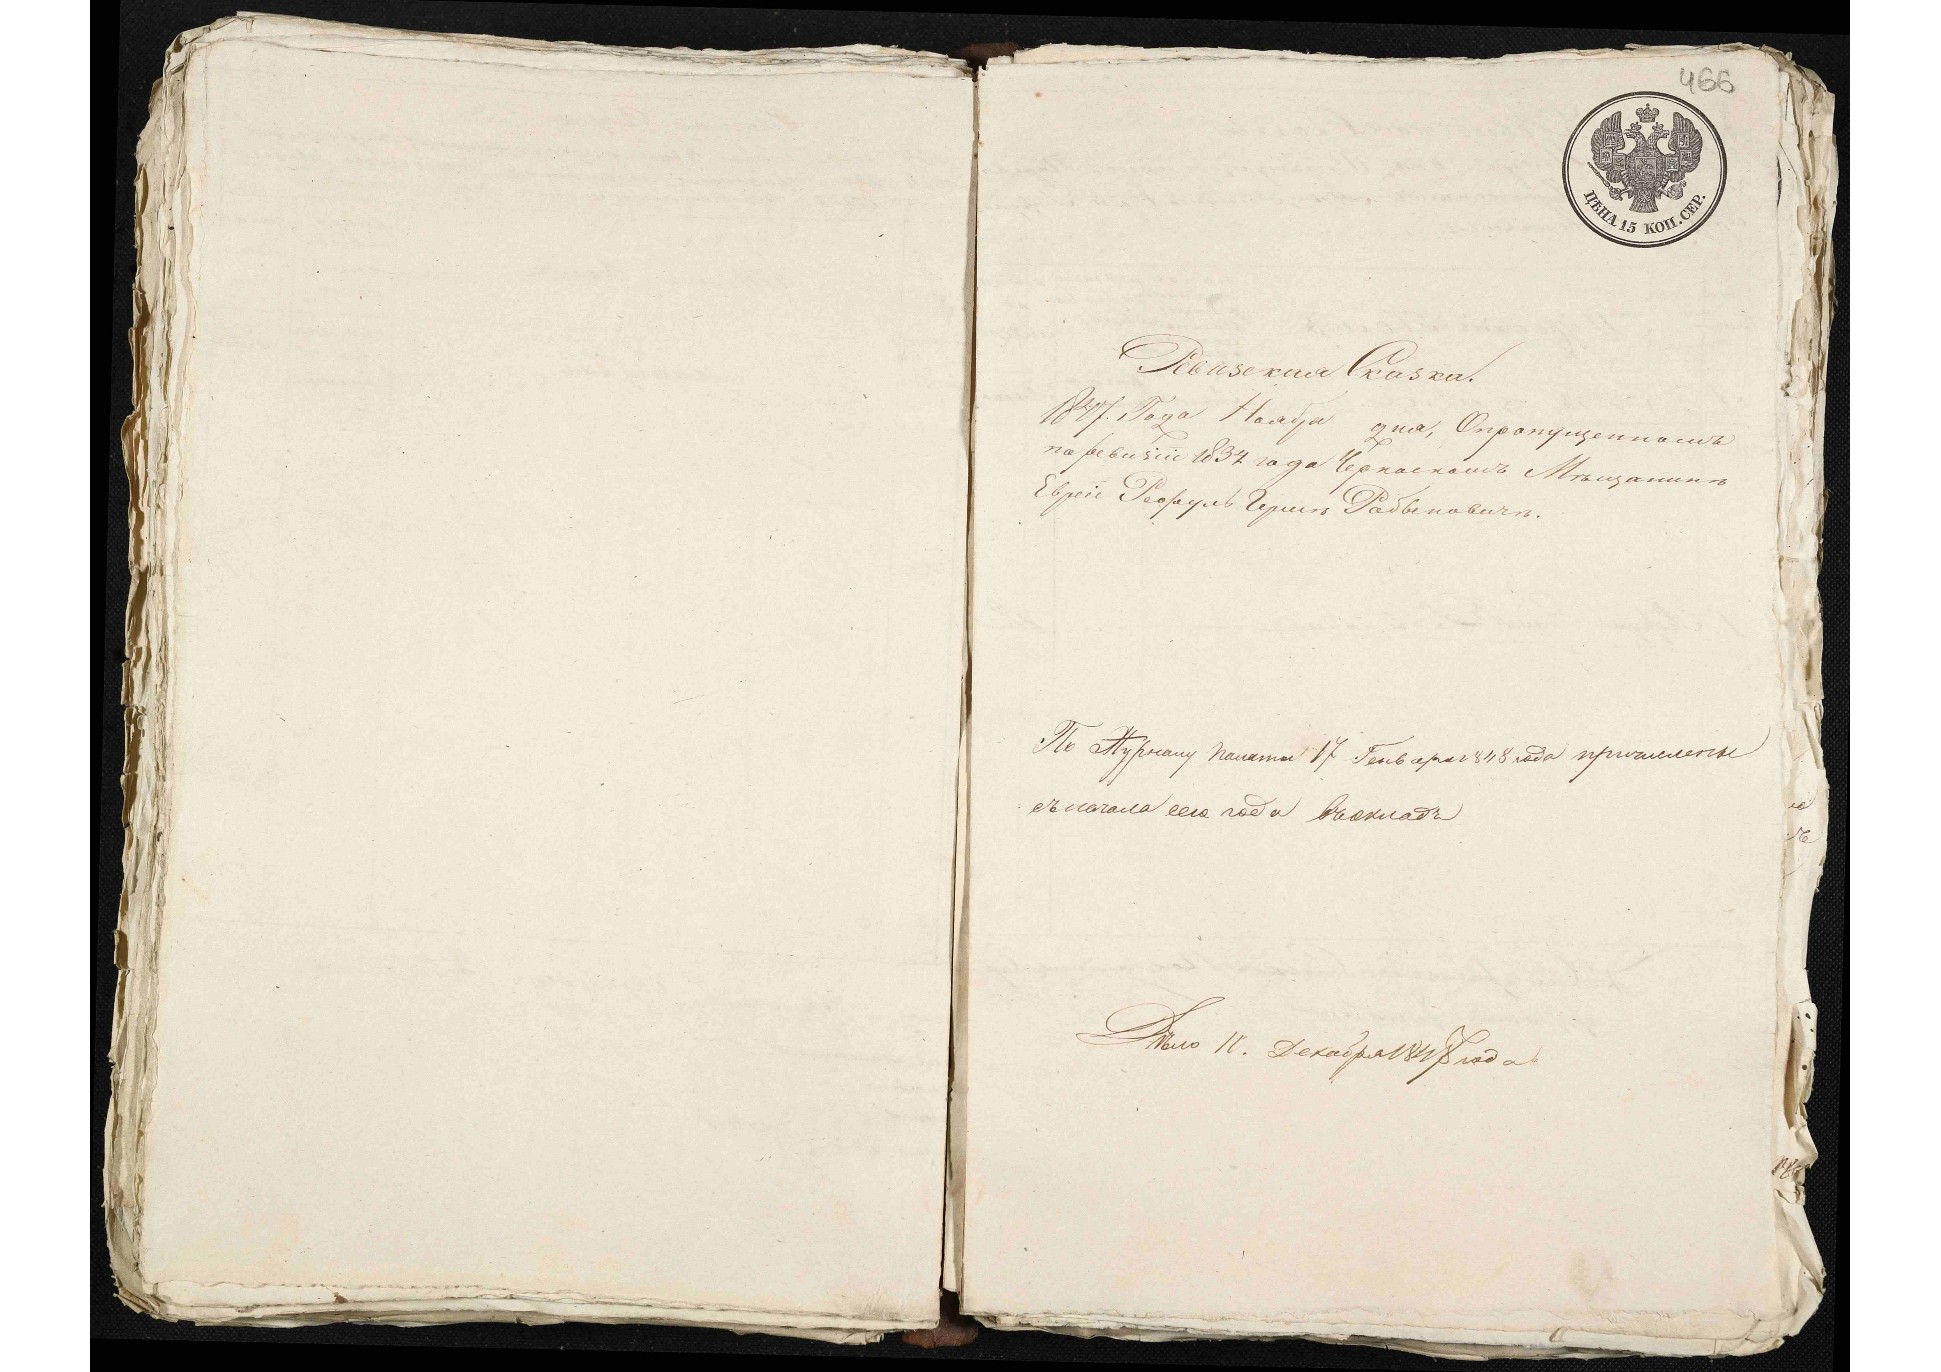 466
ЦѢНА 15 КОП. СЕР.
Ревизская Сказка.
1847. Года Ноября дня, О пропущенномъ
по ревизіи 1834 года Черкаскомъ Мѣщанинѣ
Евреѣ Гершѣ Рабиновичѣ.
По Журналу палаты 17 Генваря 1848 года причислены
съ начала сего года въ окладъ
Дѣло 11. Декабря 1847 года